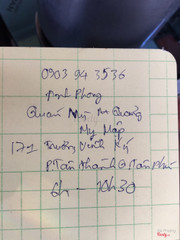 0903 94 3536
Đình Phong
Quán Mỳ Quảng
Mỹ Mập
171 Trương Vĩnh Ký
P Tân Thành Q Tân Phú
6h - 10h30